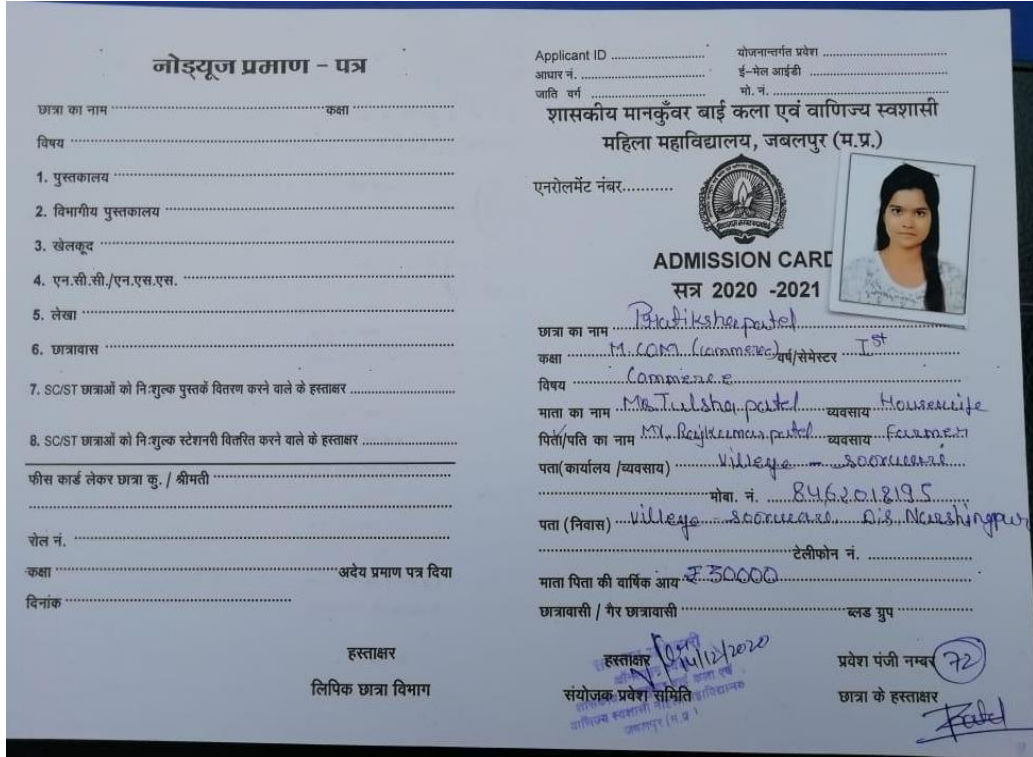 नोड्यूज प्रमाण - पत्र
छात्रा का नाम ............ कक्षा ............
विषय ............
1. पुस्तकालय ............
2. विभागीय पुस्तकालय ............
3. खेलकूद ............
4. एन.सी.सी./एन.एस.एस. ............
5. लेखा ............
6. छात्रावास ............
7. SC/ST छात्राओं को निःशुल्क पुस्तकें वितरण करने वाले के हस्ताक्षर ............
8. SC/ST छात्राओं को निःशुल्क स्टेशनरी वितरित करने वाले के हस्ताक्षर ............
फीस कार्ड लेकर छात्रा कु. / श्रीमती ............
रोल नं. ............
कक्षा ............ अदेय प्रमाण पत्र दिया
दिनांक ............
हस्ताक्षर
लिपिक छात्रा विभाग
Applicant ID ............ योजनान्तर्गत प्रवेश ............
आधार नं. ............ ई-मेल आईडी ............
जाति वर्ग ............ मो. नं. ............
शासकीय मानकुँवर बाई कला एवं वाणिज्य स्वशासी
महिला महाविद्यालय, जबलपुर (म.प्र.)
एनरोलमेंट नंबर...........
ADMISSION CARD
सत्र 2020 -2021
छात्रा का नाम Pratiksha patel
कक्षा M.COM. (commerce) वर्ष/सेमेस्टर Ist
विषय Commerce
माता का नाम Mrs. Tulsha patel व्यवसाय Housewife
पिता/पति का नाम Mr. Rajkumar patel व्यवसाय Farmer
पता(कार्यालय /व्यवसाय) Villege -
मोबा. नं. 8462018195
पता (निवास) villege - Dis. Narshingpur
टेलीफोन नं. ............
माता पिता की वार्षिक आय ₹ 30000
छात्रावासी / गैर छात्रावासी ............ ब्लड ग्रुप ............
हस्ताक्षर 14/12/2020 प्रवेश पंजी नम्बर 72
संयोजक प्रवेश समिति छात्रा के हस्ताक्षर
वाणिज्य स्वशासी
जबलपुर (म.प्र.)
Patel